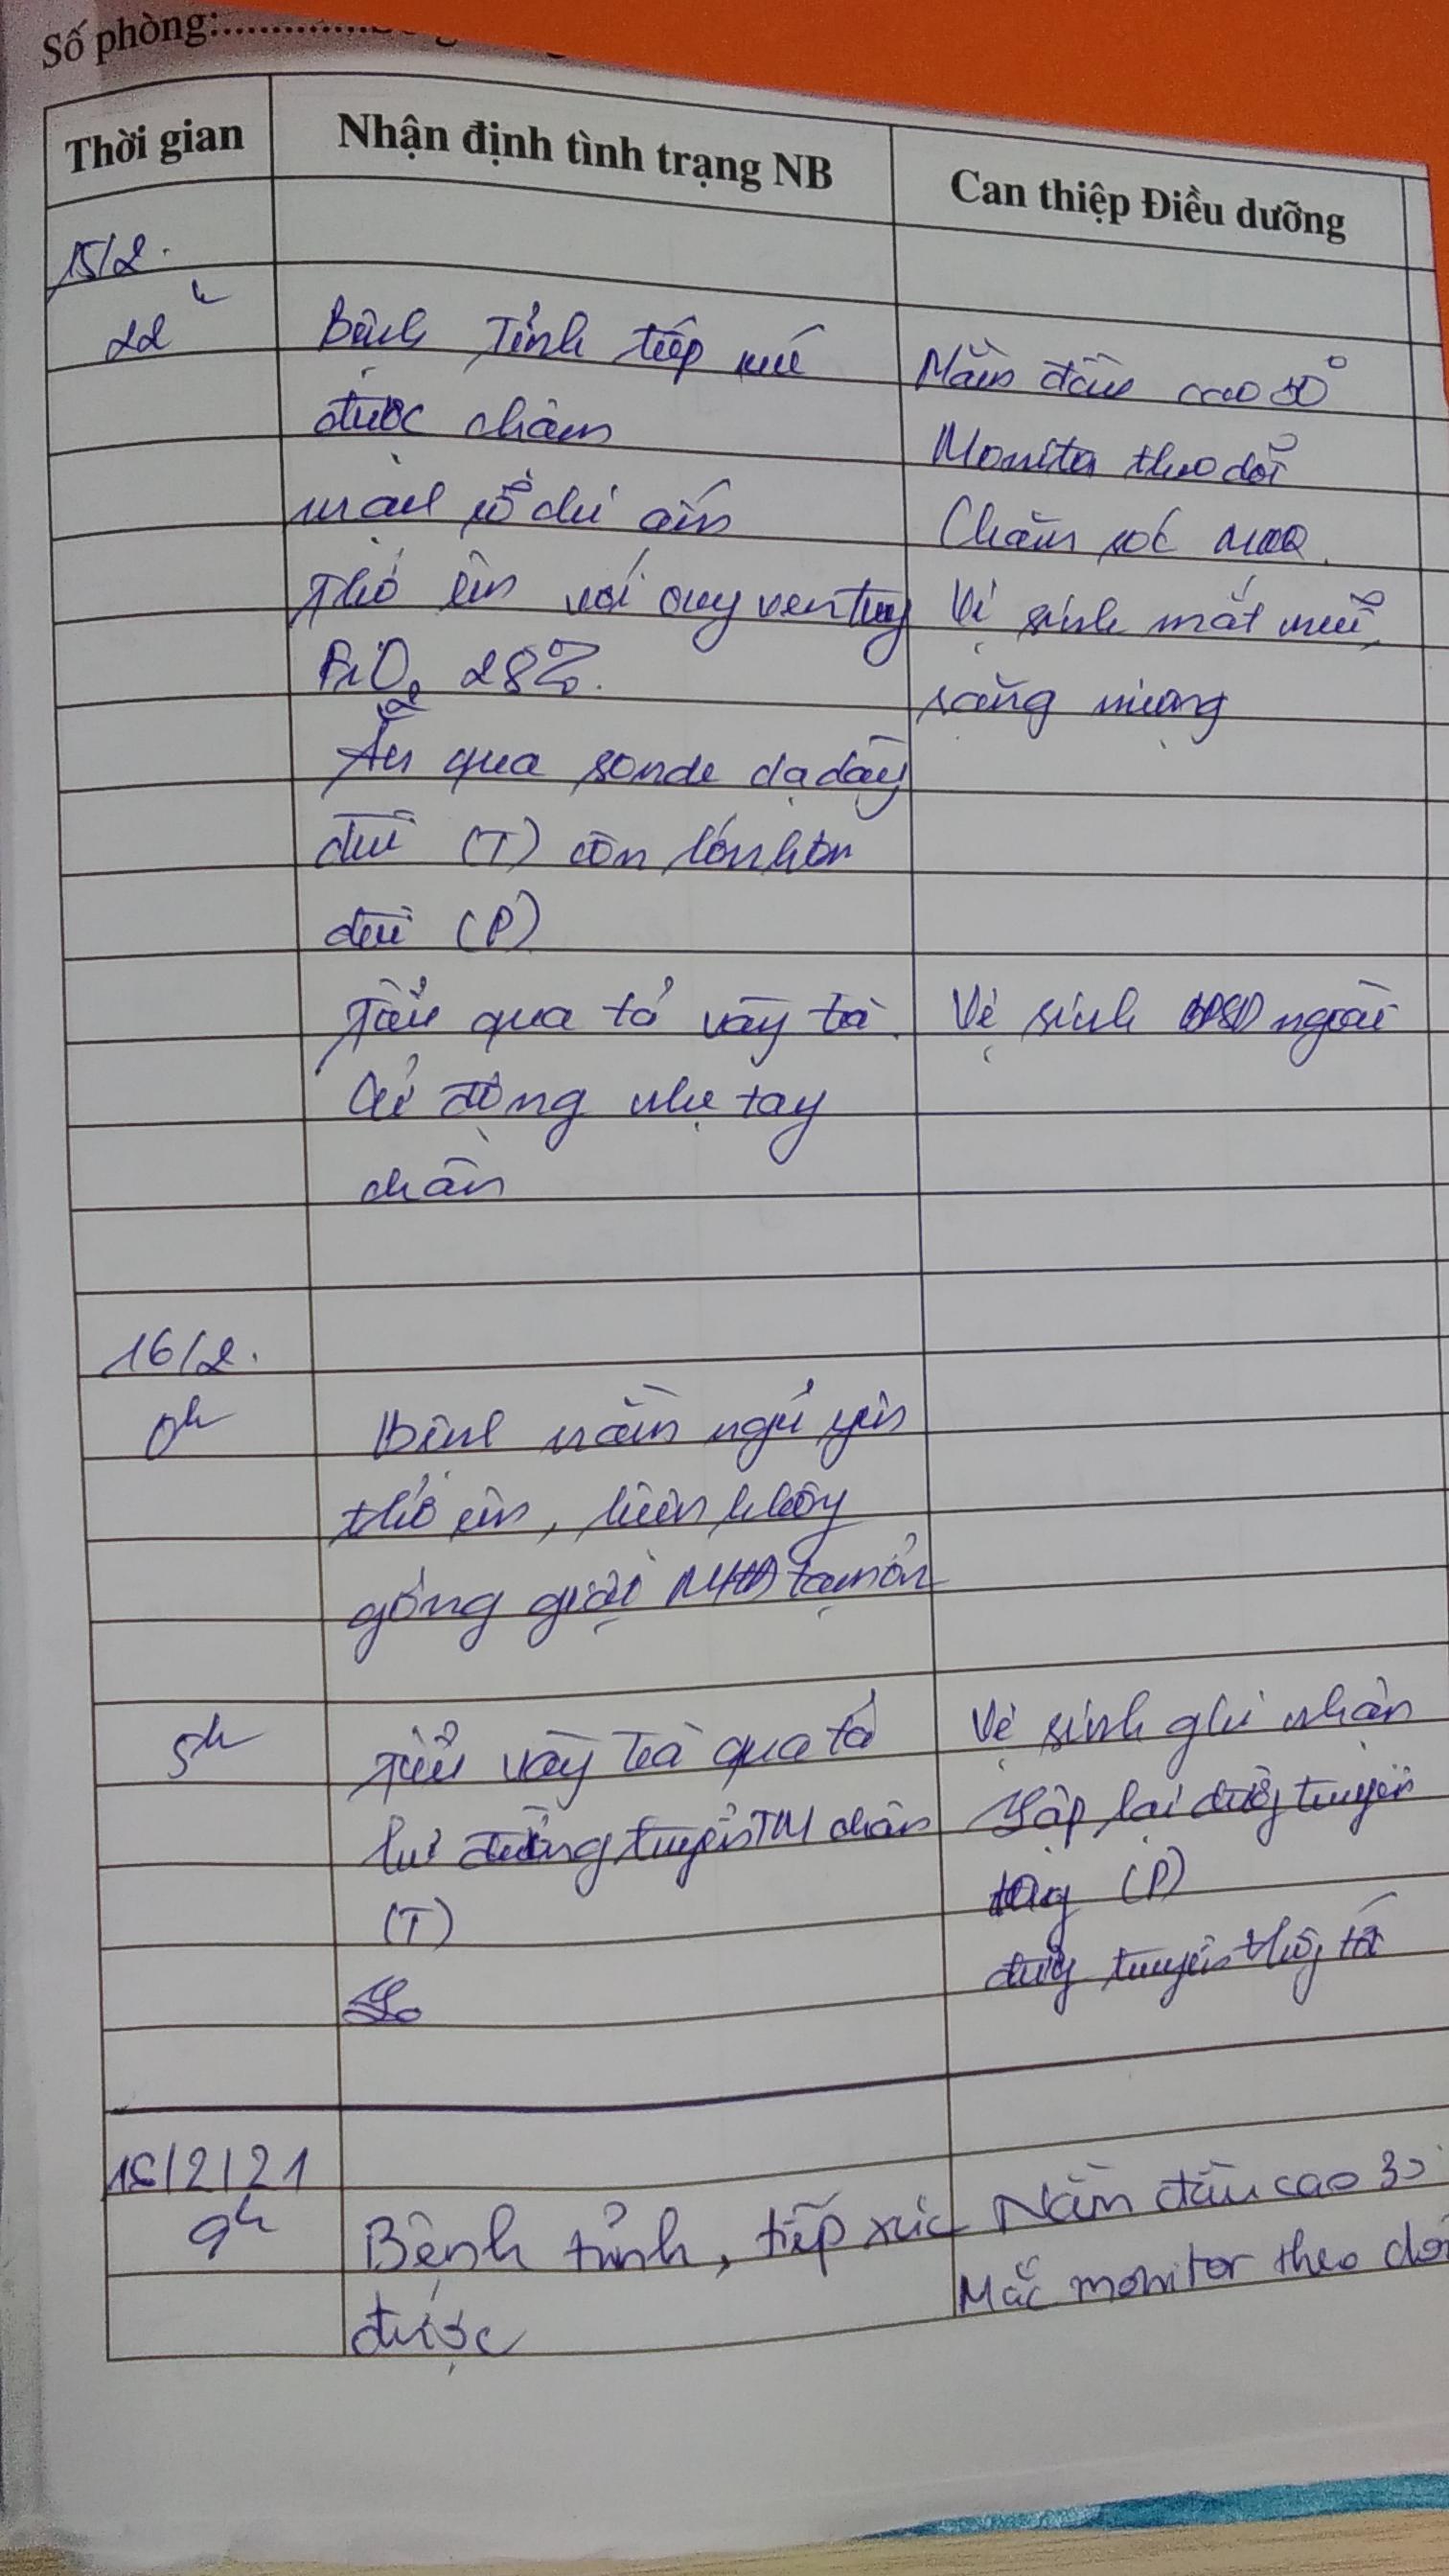 Số phòng:
Thời gian
Nhận định tình trạng NB
Can thiệp Điều dưỡng
15/2.
22h
Bệnh Tỉnh tiếp xúc
Nằm đầu cao 30°
được chậm
Monitor theo dõi
mạch rõ chi ấm
Chăm sóc
Thở êm với oxy ventury
Vệ sinh mắt mũi,
FiO2 28%.
răng miệng
Ăn qua sonde dạ dày
đùi (T) còn lớn hơn
đùi (P)
Tiểu qua tả vàng trà.
Vệ sinh BPSD ngoài
Cử động nhẹ tay
chân
16/2.
0h
Bệnh nằm ngủ yên
thở êm, hiện không
gồng giật tạm ổn
5h
Tiểu vàng trà qua tả
Vệ sinh ghi nhận
lưu đường truyền TM chân
Lập lại đường truyền
(T)
tay (P)
đường truyền thông tốt
16/2/21
9h
Bệnh tỉnh, tiếp xúc
Nằm đầu cao 30
được
Mắc monitor theo dõi